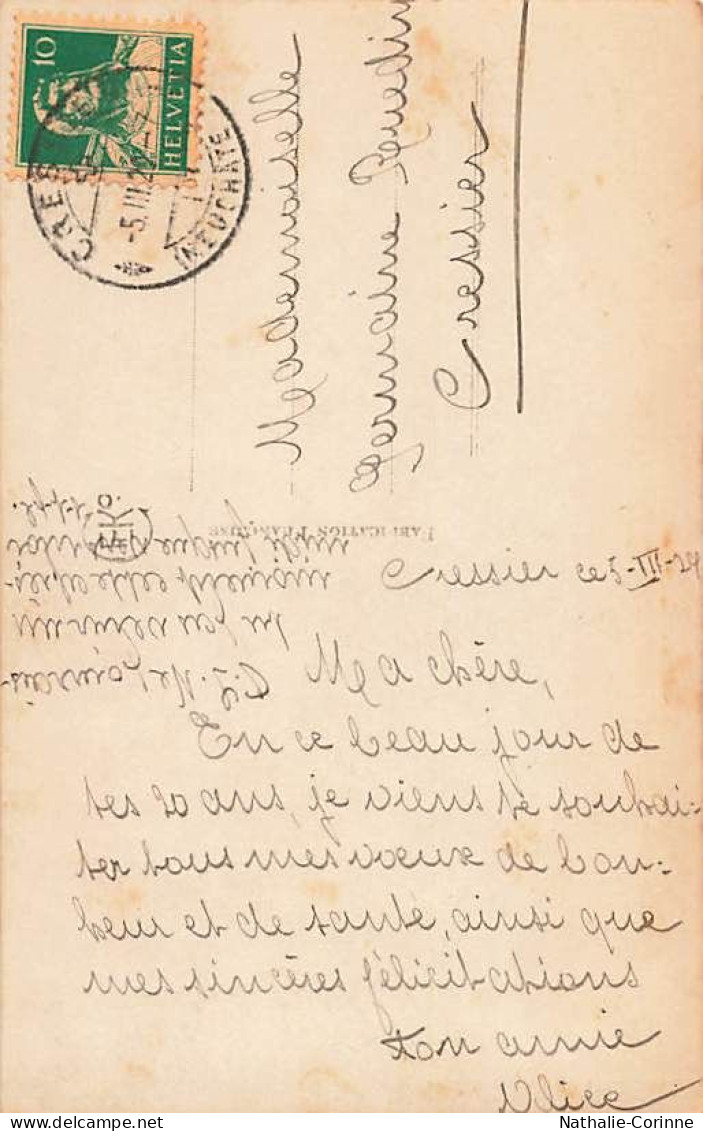 10
HELVETIA
-5.III.29
(NEUCHATEL)
Mademoiselle
Germaine Ruedin
Cressier
FABRICATION FRANÇAISE
Cressier ce 5-III-29
Ma chère,
En ce beau jour de
tes 20 ans, je viens te souhai-
ter tous mes voeux de bon-
heur et de santé, ainsi que
mes sincères félicitations
ton amie
Alice
Nathalie-Corinne